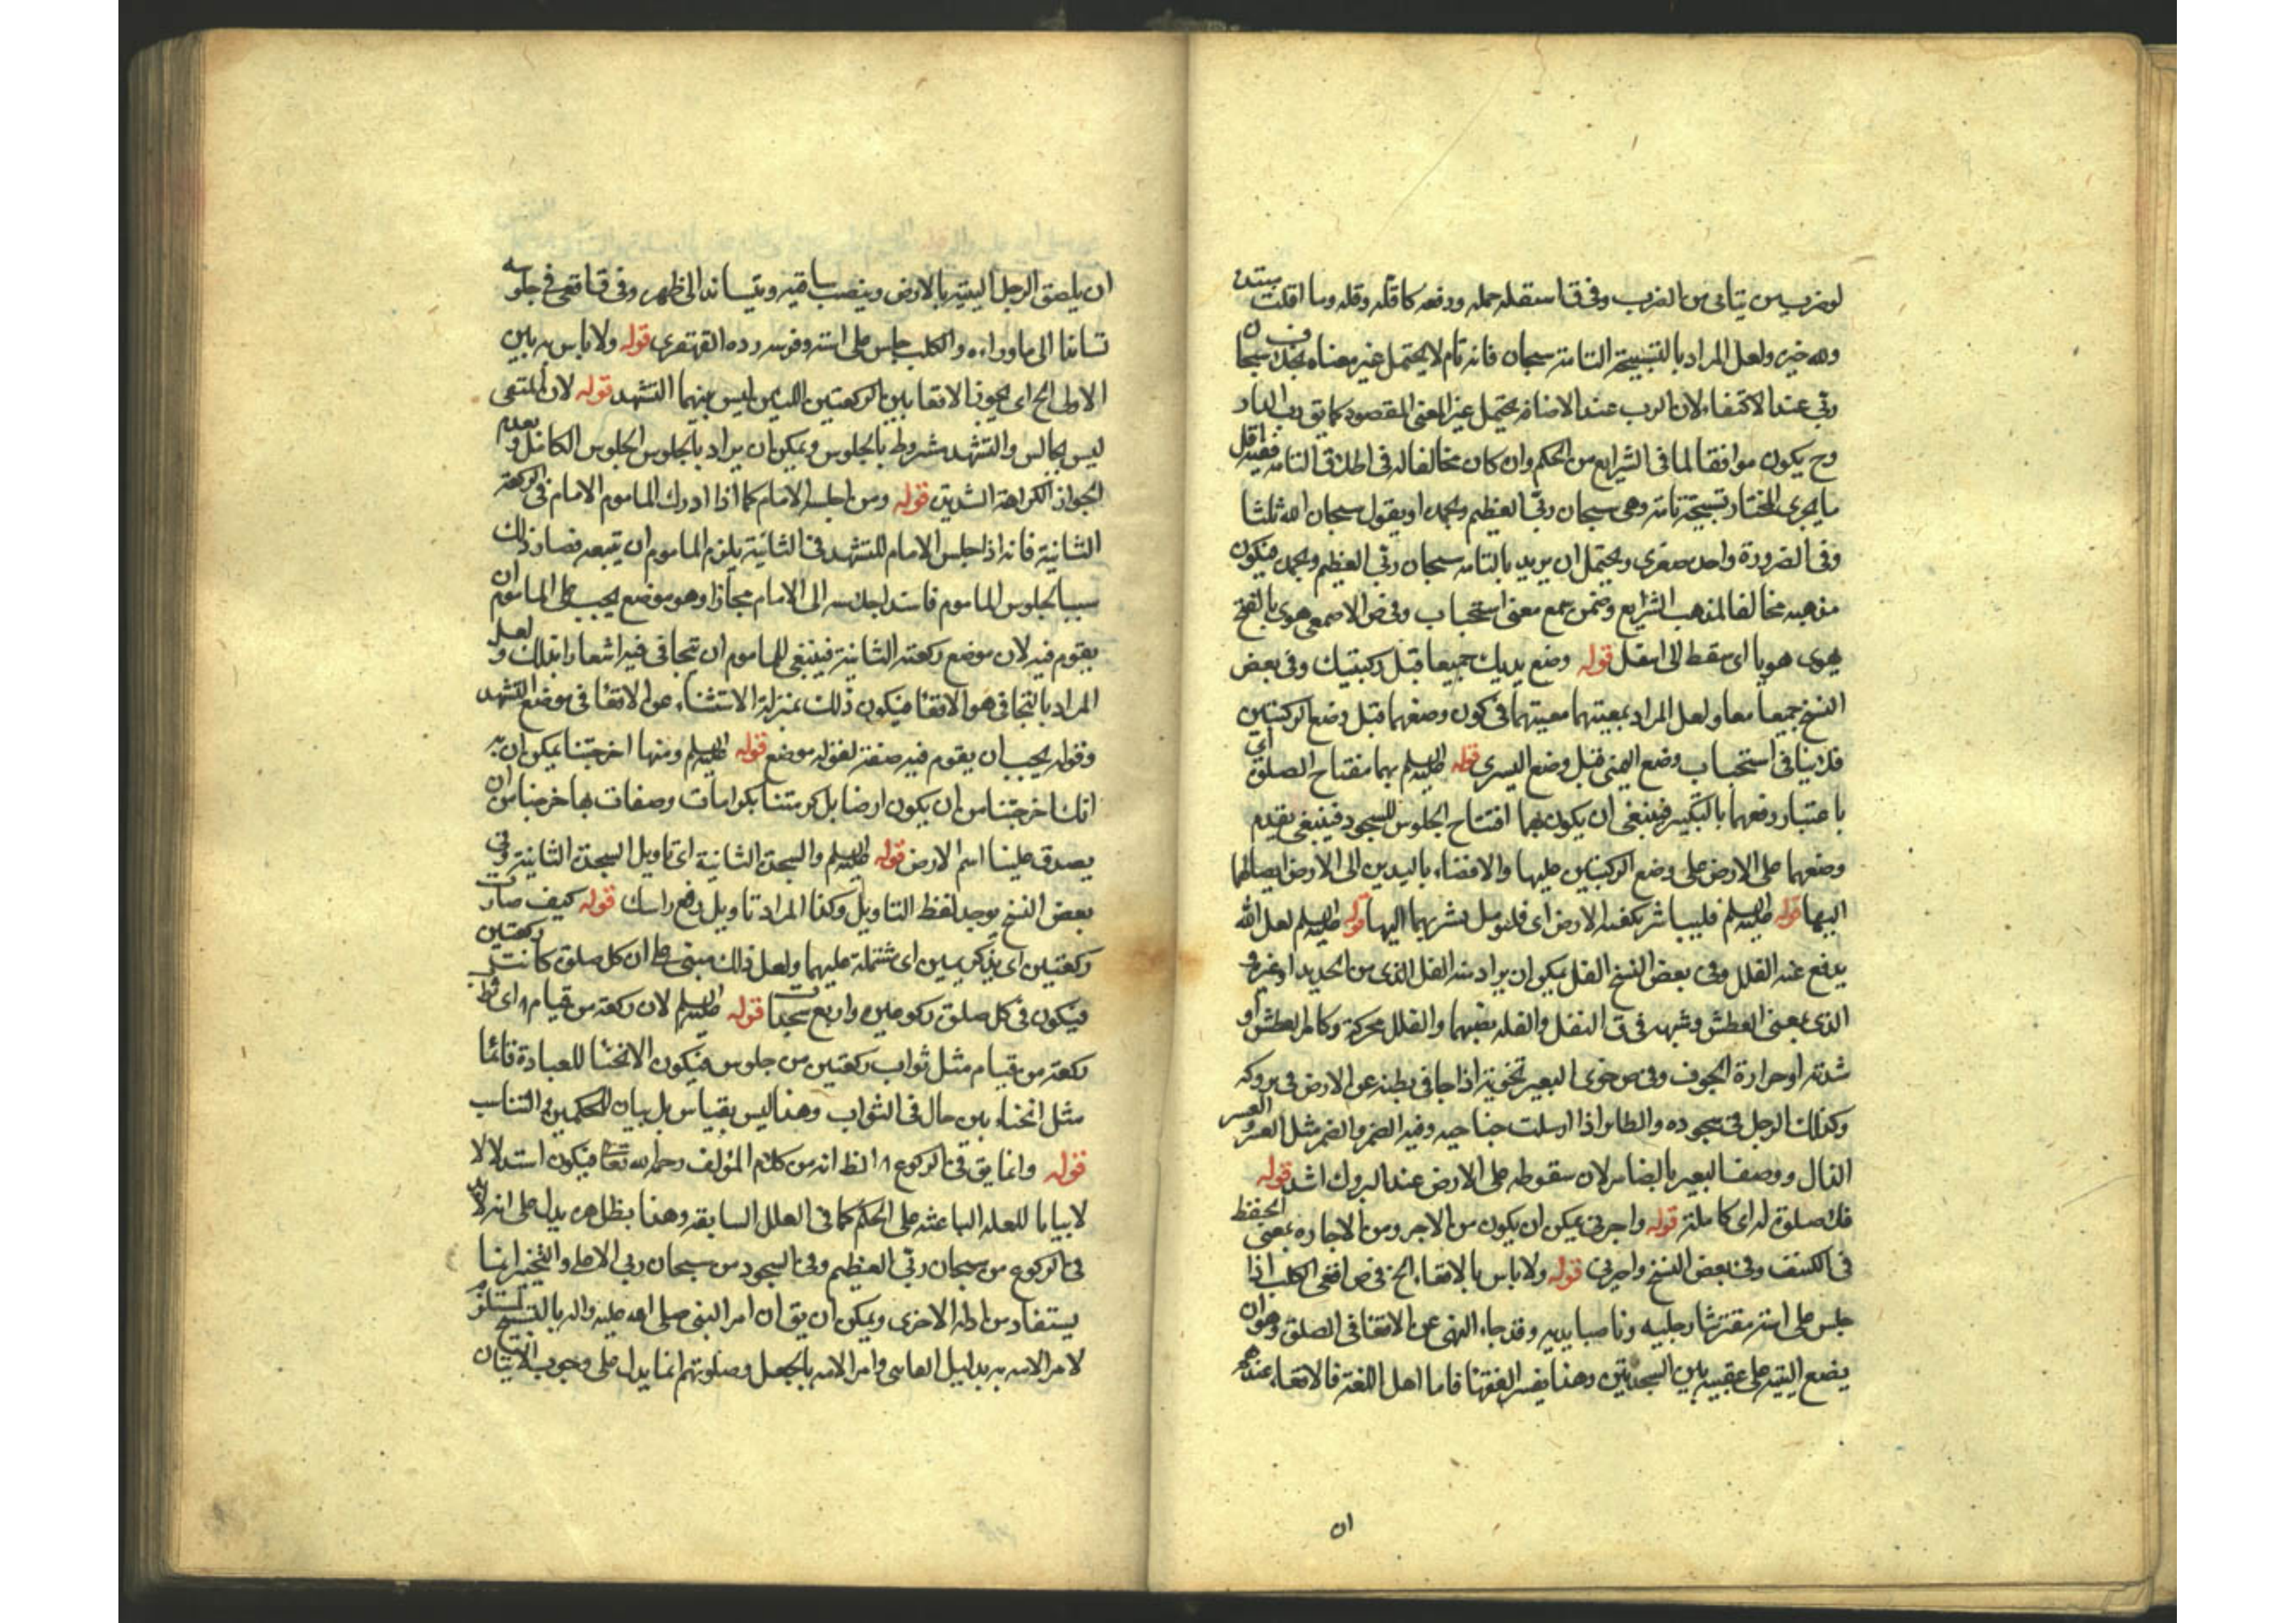 لوضرب من يتاتى من الضرب وفى ق استقله حمله ورفعه كاقله وقله وما اقلت مبتدا
ولله خبره ولعل المراد بالتسبيحة التامة سبحان فانه تام لا يحتمل غير معناه بخلاف سبحان
ربى عند الاكتفاء لان الرب عند الاضافه يحتمل غير المعنى المقصود كما يق رب الدار
وح يكون موافقا لما فى الشرايع من الحكم وان كان مخالفا له فى اطلاق التامه ففيه اقل
ما يجزى للمختار تسبيحة تامة وهى سبحان ربى العظيم وبحمده او يقول سبحان الله ثلثا
وفى الضرورة واحده صغرى ويحتمل ان يريد بالتامه سبحان ربى العظيم وبحمده فيكون
مذهبه مخالفا لمذهب الشرايع وضمن سمع معنى استجاب وفى ص الاصمعى هوى بالفتح
يهوى هويا اى سقط الى اسفل قوله وضع يديك جميعا قبل ركبتيك وفى بعض
النسخ جميعا معا ولعل المراد بمعيتهما معيتهما فى كون وضعهما قبل وضع الركبتين
فلا ينافى استحباب وضع اليمنى قبل وضع اليسرى قوله عليه السلم بهما مفتاح الصلوة اى
باعتبار رفعهما بالتكبير فينبغى ان يكون بهما افتتاح الجلوس للسجود فينبغى تقديم
وضعهما على الارض على وضع الركبتين عليها والافضاء باليدين الى الارض ايصالهما
اليها قوله عليه السلم فليباشر بكفيه الارض اى فليوصل بشرتهما اليها قوله عليه السلم لعل الله
يدفع عنه الغلل وفى بعض النسخ الغل يمكن ان يراد منه الغل الذى من الحديد او غيره و
الذى بمعنى العطش وشبهه فى ق الغل والغله بضمهما والغلل محركة وكامير العطش او
شدته او حرارة الجوف وفى ص خوى البعير تخوية اذا جافى بطنه عن الارض فى بروكه
وكذلك الرجل فى سجوده والطاير اذا ارسلت جناحيه وفيه الضمر والضمر مثل العسر والعسر
الذال ووصف البعير بالضامر لان سقوطه على الارض عند البروك اشد قوله
فلا صلوة له اى كاملة قوله واجرنى يمكن ان يكون من الاجر ومن الاجاره بمعنى الحفظ
فى الكنف وفى بعض النسخ واجبرنى قوله ولا باس بالاقعاء الخ فى ص اقعى الكلب اذا
جلس على استه مفترشا رجليه وناصبا يديه وقد جاء النهى عن الاقعا فى الصلوة وهو ان
يضع اليتيه على عقبيه بين السجدتين وهذا يفسر الفقها فاما اهل اللغة فالاقعاء عندهم
ان
ان يلصق الرجل اليتيه بالارض وينصب ساقيه ويتساند الى ظهره وفى ق اقعى فى جلوسه
تساند الى ما وراءه والكلب جلس على استه وفرسه رده القهقرى قوله ولا باس به بين
الاولى الخ اى يجوز الاقعا بين الركعتين اللتين ليس بينهما التشهد قوله لان المقعى
ليس بجالس والتشهد مشروط بالجلوس ويمكن ان يراد بالجلوس الجلوس الكامل وبعدم
الجواز الكراهة الشديده قوله ومن اجلسه الامام كما اذا ادرك الماموم الامام فى الركعة
الثانية فانه اذا جلس الامام للتشهد فى الثانية يلزم الماموم ان يتبعه فصار ذلك
سببا لجلوس الماموم فاسند اجلاسه الى الامام مجازا وهو موضع يجب على الماموم ان
يقوم فيه لان موضع ركعته الثانية فينبغى للماموم ان يتجافى فيه اشعارا بذلك ولعل
المراد بالتجافى هو الاقعا فيكون ذلك بمنزلة الاستثناء عن الاقعا فى موضع التشهد
وقوله يجب ان يقوم فيه صفة لقوله موضع قوله عليه السلم ومنها اخرجتنا يمكن ان يريد
انك اخرجتنا من ان يكون ارضا بل كرمتنا بكرامات وصفات بها خرجنا من ان
يصدق علينا اسم الارض قوله عليه السلم والسجدة الثانية اى تاويل السجدة الثانية وفى
بعض النسخ يوجد لفظ التاويل وكذا المراد تاويل رفع راسك قوله كيف صارت
ركعتين اى بذكرين اى مشتملة عليهما ولعل ذلك مبنى على ان كل صلوة كانت ركعتين
فيكون فى كل صلوة ركوعين واربع سجدات قوله عليه السلم لان ركعة من قيام اى ثواب
ركعة من قيام مثل ثواب ركعتين من جلوس فيكون الانحنا للعبادة قائما
مثل انحناء بين حال فى الثواب وهذا ليس بقياس بل بيان للحكمين والتناسب
قوله وانما يق فى الركوع الظ انه من كلام المؤلف رحمه الله تعا فيكون استدلالا
لا بيانا للعله الباعثه على الحكم كما فى العلل السابقه وهذا بظاهره يدل على انه لا بد
فى الركوع من سبحان ربى العظيم وفى السجود من سبحان ربى الاعلى والتخيير انما
يستفاد من ادله الاخرى ويمكن ان يق ان امر النبى صلى الله عليه واله بالتسبيح استلزم
لامر الامه به بدليل التاسى وامر الامه بالجعل وصلوتهم انما يدل على وجوب الاتيان